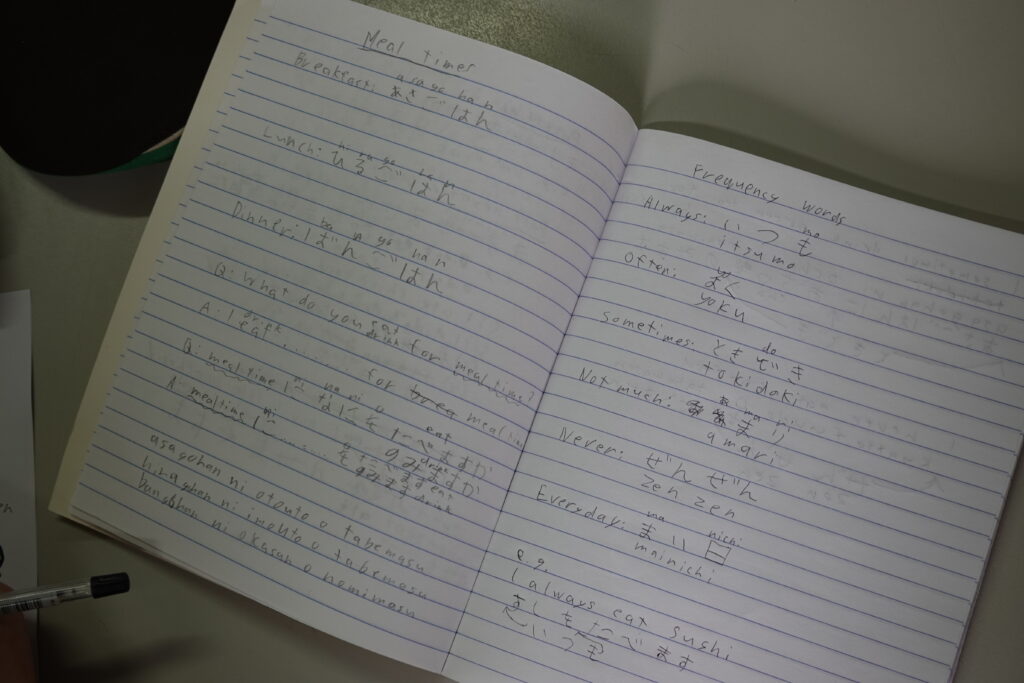 Meal times
asa go han
Breakfast: あさごはん
hi ru go ha n
Lunch: ひるごはん
ba n go ha n
Dinner: ばんごはん
Q: What do you eat drink for meal time?
A: I drink eat ..... for meal time
Q: meal time に なにを たべますか
na ni o eat
のみますか drink
A: mealtime に ........ を たべます eat
ni
のみます drink
asagohen ni otouto o tabemasu
hirugohen ni imouto o tabemasu
bangohan ni okasan o nomimasu
Frequency words
Always: いつも
mo
itsumo
Often: よく
yo
yoku
do
Sometimes: ときどき
tokidoki
a ma ri
Not much: あまり
amari
Never: ぜんぜん
zen zen
ma nichi
Everyday: まい日
mainichi
e.g.
I always eat sushi
すしをたべます
いつも
en